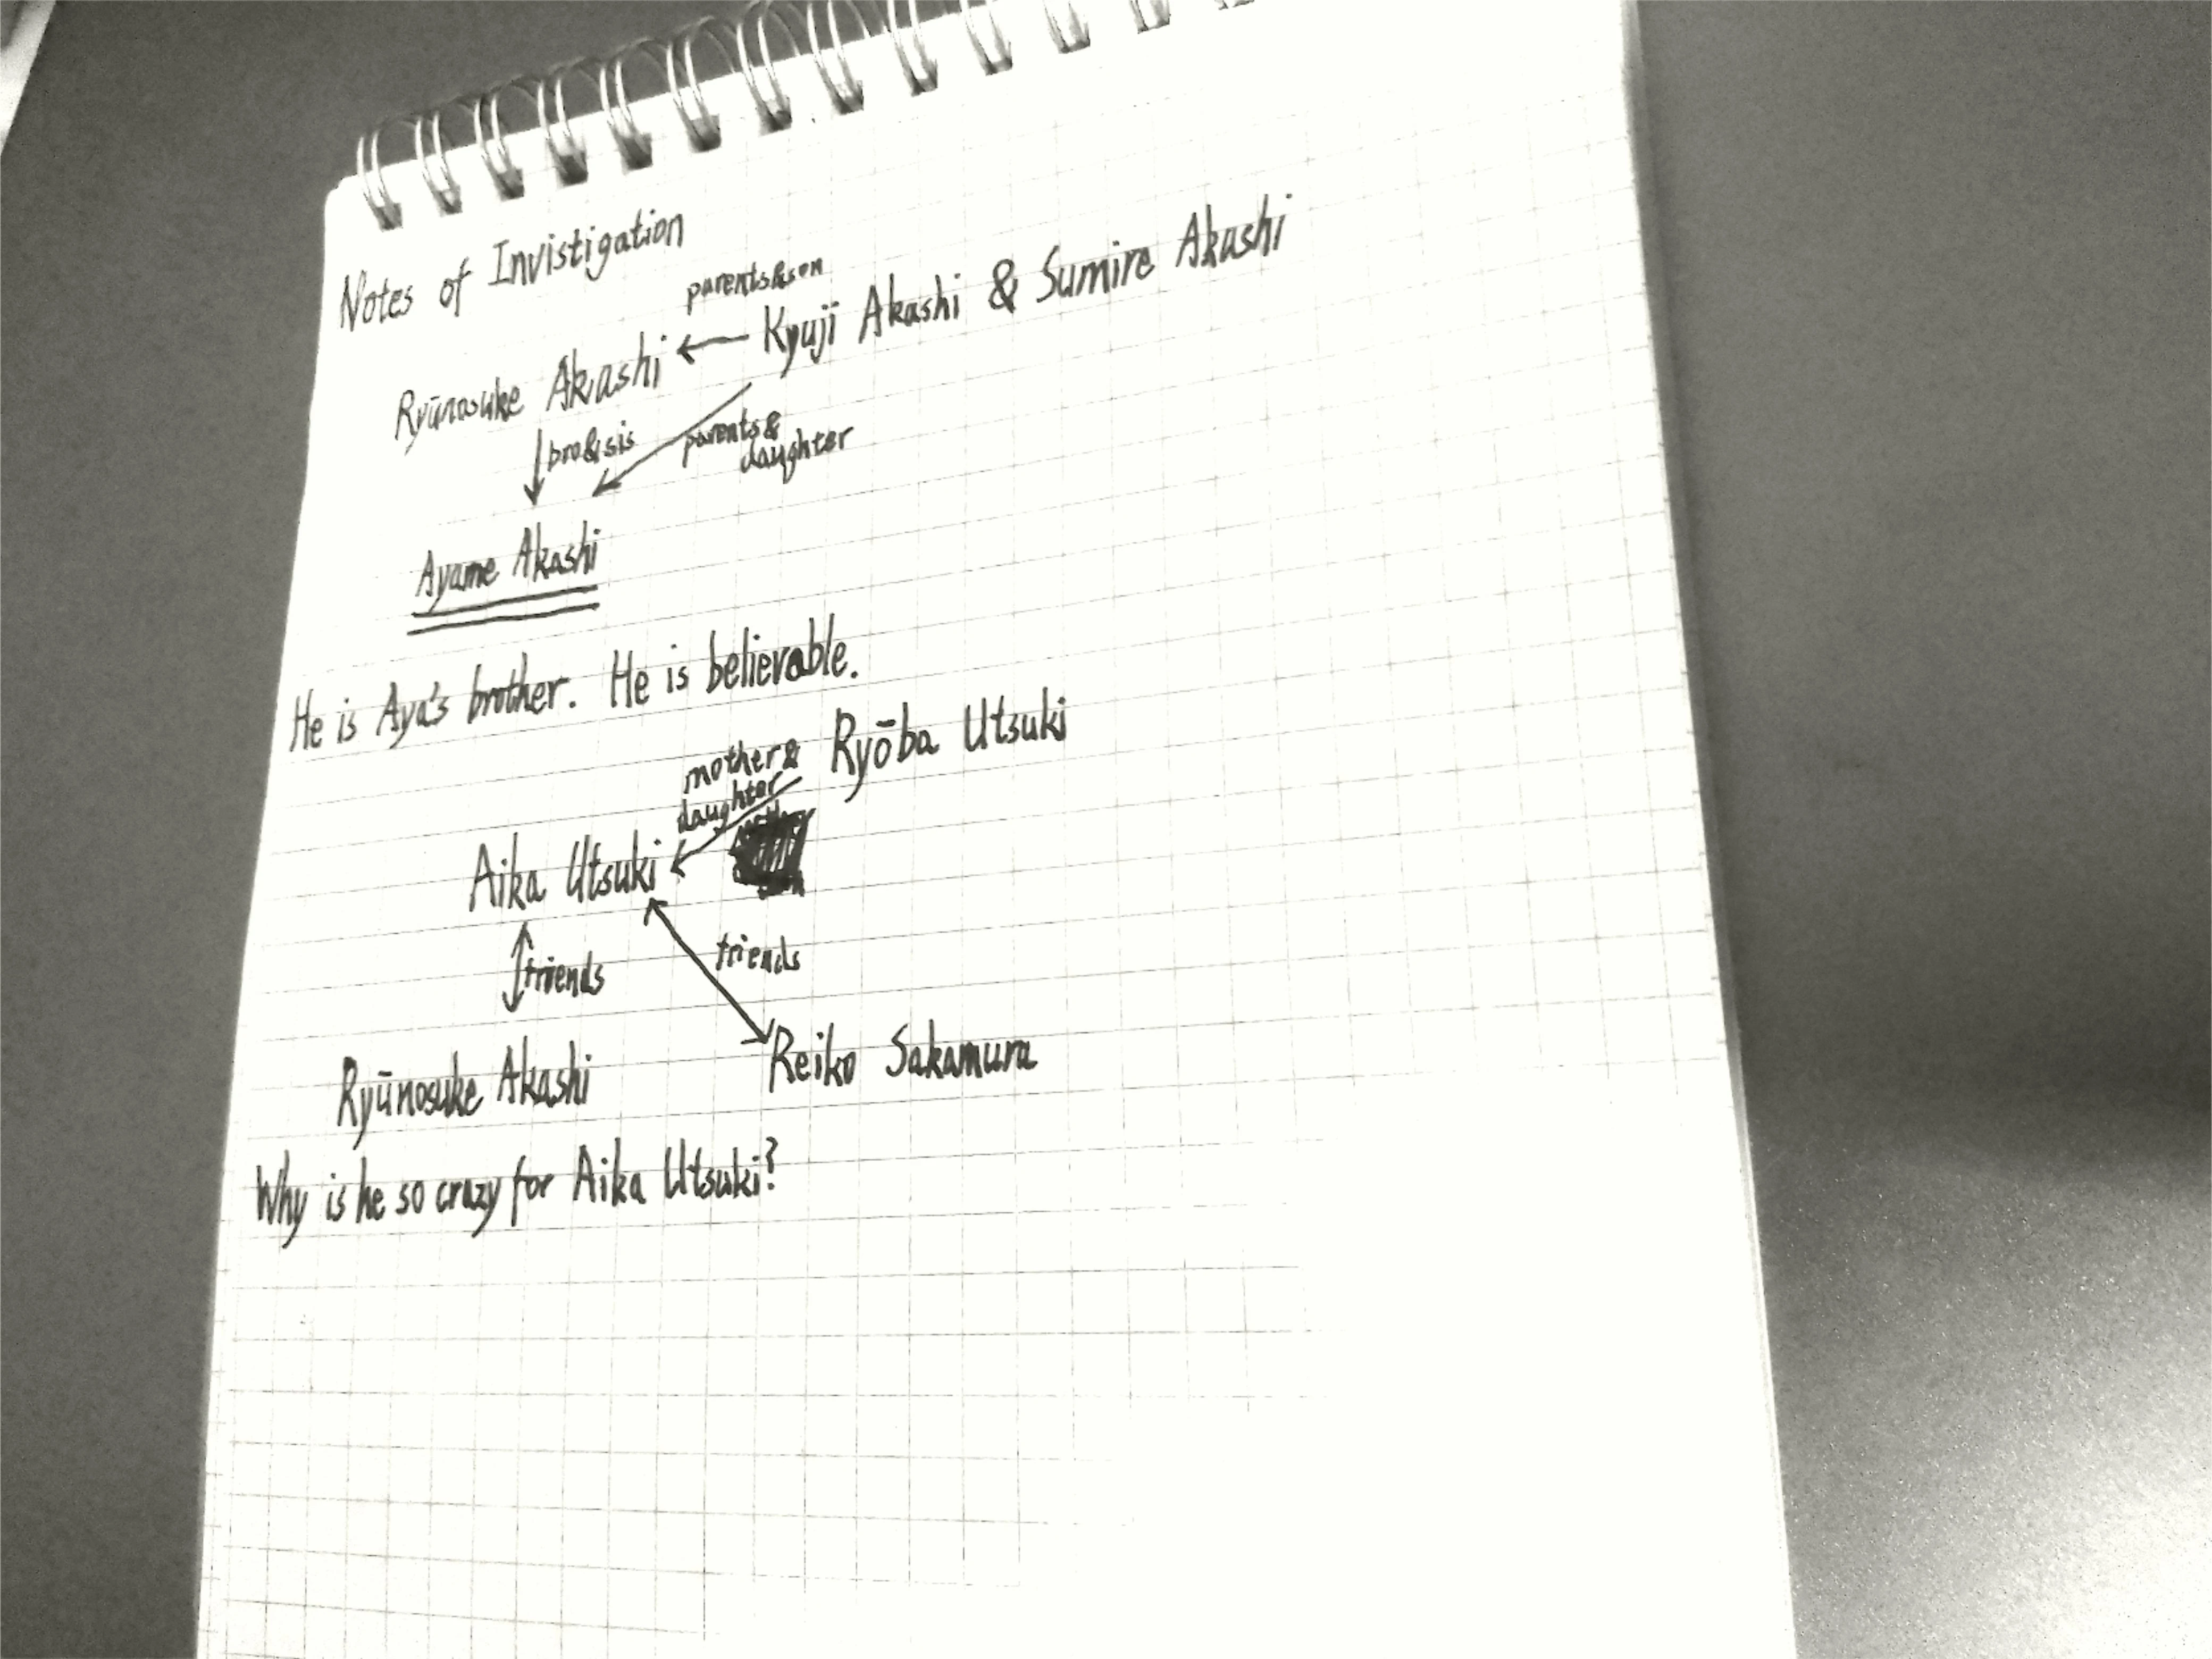 Notes of Invistigation
parents&son
Ryūnosuke Akashi ← Kyuji Akashi & Sumire Akashi
bro&sis
parents&
daughter
Ayame Akashi
He is Aya's brother. He is believable.
mother&
daughter
Ryōba Utsuki
Aika Utsuki
friends
friends
Ryūnosuke Akashi
Reiko Sakamura
Why is he so crazy for Aika Utsuki?